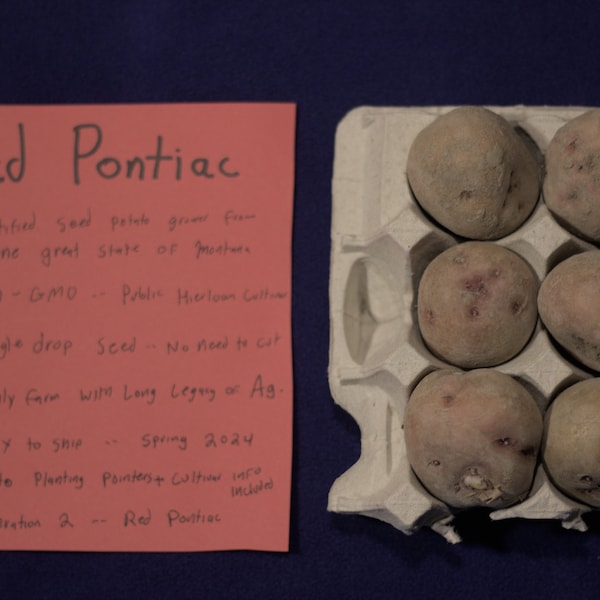 ed Pontiac
tified seed potato grower from
ne great state of Montana
- GMO -- Public Hierloom Cultivar
gle drop seed -- No need to cut
ly farm with Long Legacy of Ag.
y to ship -- Spring 2024
to Planting Pointers + Cultivar info included
ration 2 -- Red Pontiac